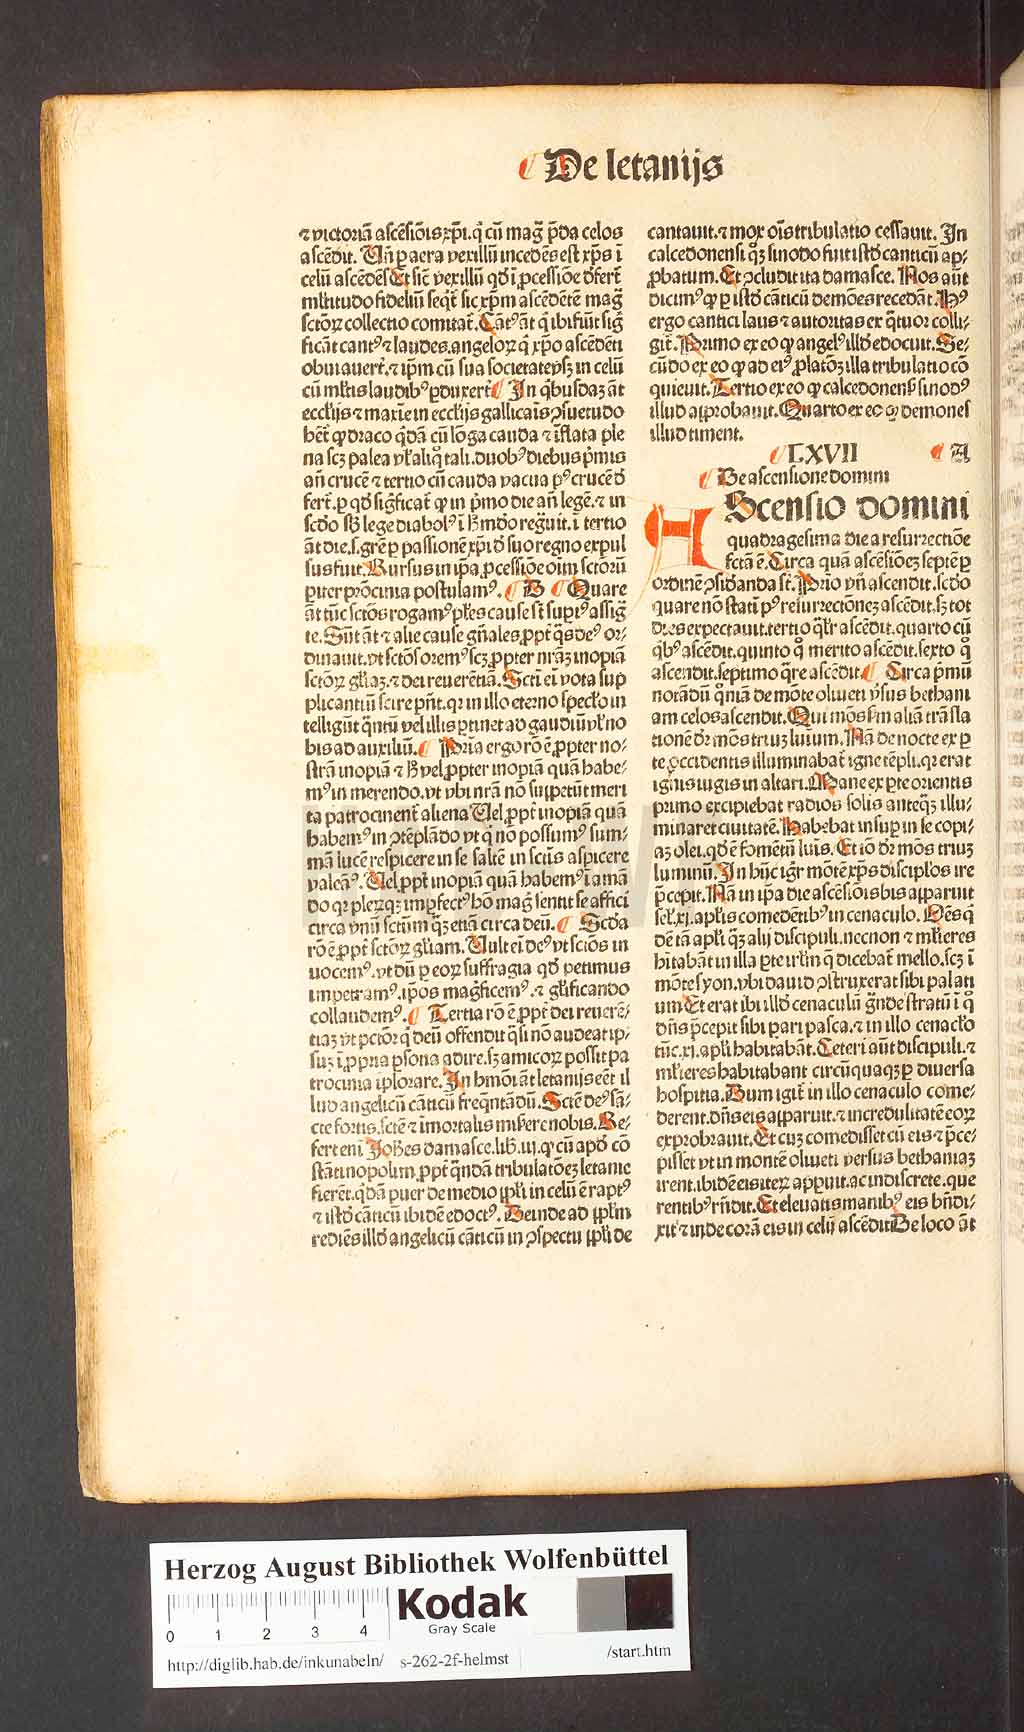 ¶ De letanijs
⁊ victoriā ascēsiōis xp̄i. q̇ cū mag̃ p̃da celos
ascēdit. Uñ ꝑ aera vexillū incedēs est xp̄s ī
celū ascēdēs Et sic̄ vexillū qd̓ ī ꝓcessiōe dẽfert̃
ml̃titudo fideliū seqt̃ sic xp̄m ascēdētē mag̃
sctōꝝ collectio comitat̃. Catꝰ āt q̇ ibi fiūt sig̃
ficāt cantꝰ ⁊ laudes. angeloꝝ q̇ xp̄o ascēdēti
obuiauert̃. ⁊ ip̄m cū sua societate vsqꝫ in celū
cū ml̃tis laudibꝰ ꝓduxert̃ ¶ In q̇busdaꝫ āt
ecclijs ⁊ maxīe in ecclijs gallicaīs ꝯsuetudo
hēt ꝙ draco q̇dā cū lōga cauda ⁊ īflata ple
na scꝫ palea vl̓ aliq̇ tali. duobꝰ diebus p̃mis
añ crucē ⁊ tertio cū cauda vacua pꝰ crucē dẽ
fert̃. ꝑ qd̓ sig̃ficat̃ ꝙ in p̃mo die añ legē. ⁊ in
scd̓o sb̓ lege diabolꝰ ī h̓ mūdo regūit. ī tertio
āt die. s. gr̃e ꝑ passionē xp̄i d̓ suo regno expul
sus fuit. Rursus in ip̄a ꝓcessiōe oīm sctōrū
pariter p̃rocinia postulamꝰ. ¶ B ¶ Quare
āt tūc sctōs rogamꝰ pl̃es cause st̃ supiꝰ assig̃
te. Sūt āt ⁊ alie cause gn̄ales. ꝓpt̃ q̇s deꝰ or-
dinauit. vt sctōs oremꝰ scꝫ ꝓpter nr̃aꝫ inopiā
sctōꝝ gl̃iaꝫ. ⁊ dei reuerētiā. Scti eī vota sup
plicantiū scire pñt. qꝛ in illo eterno spec̄lo in
telligūt q̃ntū vel illis ꝑtinet ad gaudiū vl̓ no
bis ad auxiliū. ¶ Pria ergo rō ē ꝓpter no-
strā inopiā ⁊ h̓ vel ꝓpter inopiā quā habe-
mꝰ in merendo. vt vbi nr̃a nō suppetūt meri
ta patrocinent̃ aliena Uel ꝓpt̃ inopiā quā
habemꝰ in ꝯtēplādo vt q̇ nō possumꝰ sum-
mā lucē respicere in se saltē in sctīs aspicere
valeāꝰ. Uel ꝓpt̃ inopiā quā habemꝰ ī amā
do qꝛ pleꝛūqꝫ imꝑfectꝰ hō mag̃ sentit se affici
circa vnū sctūm q̃ꝫ etiā circa deū. ¶ Scd̓a
rō ē ꝓpt̃ sctōꝝ gl̃iam. Uult eī deꝰ vt sctōs in
uocemꝰ. vt dū ꝑ eoꝝ suffragia qd̓ petimus
impetramꝰ. ip̄os mag̃ficemꝰ. ⁊ gl̃ificando
collaudemꝰ. ¶ Tertia rō ē ꝓpt̃ dei reuerē-
tiaꝫ vt pctōr q̇ deū offendit q̃si nō audeat ip-
suꝫ ī ꝓpria ꝑsona adire. sꝫ amicoꝝ possit pa
trocinia īplorare. In hmōi āt letanijs eēt il
lud angelicū cāticū freq̃ntādū. Sctē deꝰ sā-
cte fortis. sctē ⁊ īmortalis misere nobis. Re-
fert enī Joh̄es damasce. lib̃. iij. ꝙ cū apd̓ cō
stātinopolim ꝓpt̃ q̃ndā tribulatōeꝫ letanie
fierēt. q̇dā puer de medio ppl̓i in celū ē raptꝰ
⁊ istd̓ cāticū ibidē edoctꝰ. Deinde ad ppl̓m
rediēs illd̓ angelicū cāticū in ꝯspectu ppl̓i de
cantauit. ⁊ mox oīs tribulatio cessauit. In
calcedonensi qꝫ sinodo fuit istd̓ canticū ap-
ꝓbatum. Et ꝯcludit ita damasce. Nos aūt
dicimꝰ ꝙ ꝑ istd̓ cāticū demōes recedāt. Hꝰ
ergo cantici laus ⁊ autoritas ex q̇tuor colli-
git̃. Primo ex eo ꝙ angelꝰ illd̓ edocuit. Se-
cūdo ex eo ꝙ ad eiꝰ ꝓlatōꝫ illa tribulatio cō
quieuit. Tertio ex eo ꝙ calcedonens̃ sinodꝰ
illud approbauit. Quarto ex eo ꝙ demones
illud timent.
¶ LXVII ¶ A
¶ De ascensione domini
AScensio domini
quadragesima die a resurrectiōe
fctā ē. Circa quā ascēsiōeꝫ septē ꝑ
ordinē ꝯsid̓anda st̃. Prīo vñ ascendit. scd̓o
quare nō stati pꝰ resurrectiōneꝫ ascēdit. sꝫ tot
dies expectauit. tertio qͣl̓r ascēdit. quarto cū
q̇bꝰ ascēdit. quinto qͦ merito ascēdit. sexto qͦ
ascendit. septimo q̃re ascēdit. ¶ Circa p̃mū
notādū qͦniā de mōte oliueti v̓sus bethani
am celos ascendit. Qui mōs scd̓m aliā trāsla
tionē dr̃ mōs triuꝫ luīum. Nā de nocte ex ꝑ
te occidentis illuminabat̃ igne tēpli. qꝛ erat
ignis iugis in altari. Mane ex ꝑte orientis
primo excipiebat radios solis anteqꝫ illu-
minaret ciuitatē. Habebat insup in se copi-
aꝫ olei. qd̓ ē fomētū luīs. Et iō dr̃ mōs triuꝫ
luminū. In huc̄ igr̃ mōtē xp̄s disciplōs ire
p̃cepit. Nā in ip̄a die ascēsiōis bis apparuit
sel̓. xj. apl̓is comedētibꝰ in cenaculo. Oēs q̇
dē tā apl̓i q̃ꝫ alij discipuli. necnon ⁊ ml̓ieres
hītabāt in illa ꝑte irl̓m q̇ dicebat̃ mello. scꝫ ī
mōte syon. vbi dauid ꝯstruxerat sibi palati
um Et erat ibi illd̓ cenaculū g̃nde stratū ī qͦ
dn̄s p̃cepit sibi pari pasca. ⁊ in illo cenac̄lo
tūc. xj. apl̓i habitabāt. Ceteri aūt discipuli. ⁊
ml̓ieres habitabant circūquaqꝫ ꝑ diuersa
hospitia. Dum igit̃ in illo cenaculo come-
derent. dn̄s eis apparuit. ⁊ incredulitatē eoꝝ
exprobrauit. Et cuꝫ comedisset cū eis ⁊ p̃ce-
pisset vt in montē oliueti versus bethaniaꝫ
irent. ibidē eis iteꝝ appuit. ac indiscrete. que
rentibꝰ rn̄dit. Et eleuatis manibꝰ eis bn̄di-
xit ⁊ inde corā eis in celū ascēdit De loco āt
Herzog August Bibliothek Wolfenbüttel
0 1 2 3 4
Kodak
Gray Scale
http://diglib.hab.de/inkunabeln/ s-262-2f-helmst /start.htm